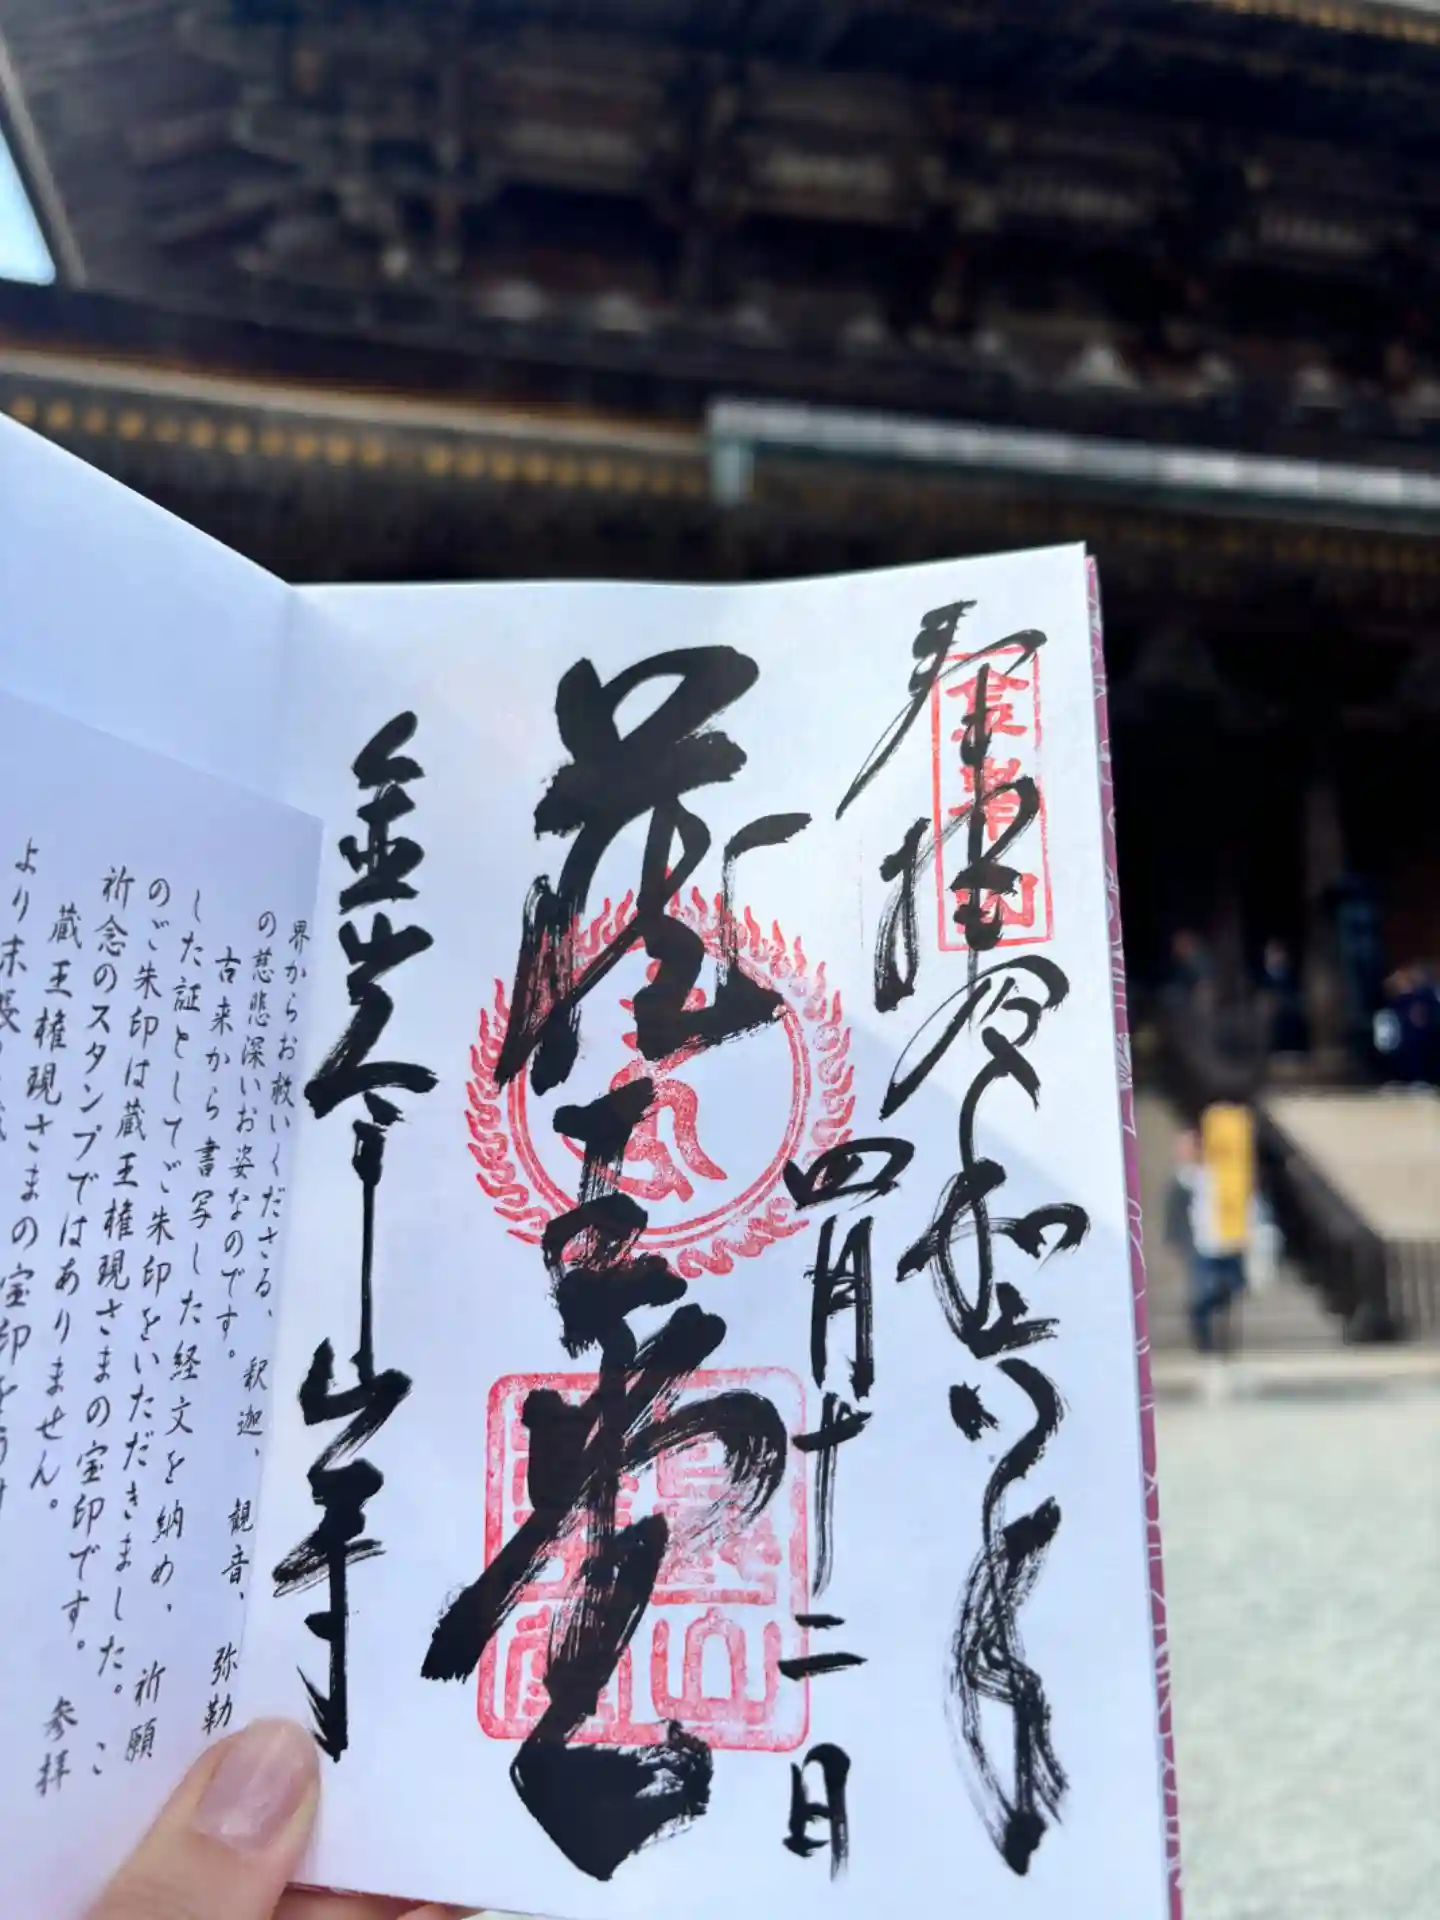 奉拝
金峯山
令和
年
四月十二日
蔵王堂
金峯山寺
界からお救いくださる、釈迦、観音、弥勒
の慈悲深いお姿なのです。
古来から書写した経文を納め、祈願
した証としてご朱印をいただきました。こ
のご朱印は蔵王権現さまの宝印です。参拝
祈念のスタンプではありません。
蔵王権現さまの宝印をうけ
より末長